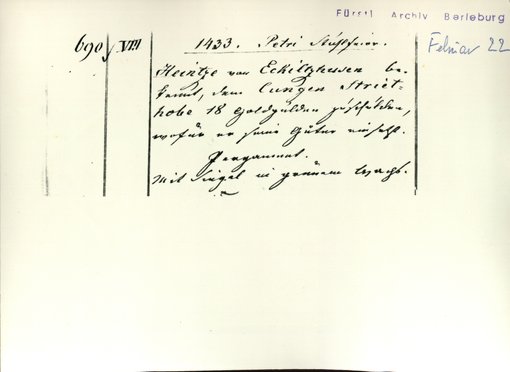 Fürstl Archiv Berleburg
Februar 22
690 VIII
1433. Petri Stuhlfeier.
Heintze von Eckiltzhusen be-
kennt, dem Cungen Striet-
hobe 18 Goldgulden zu schulden,
wofür er seine Güter einsetzt.
Pergament.
Mit Siegel in grünem Wachs.